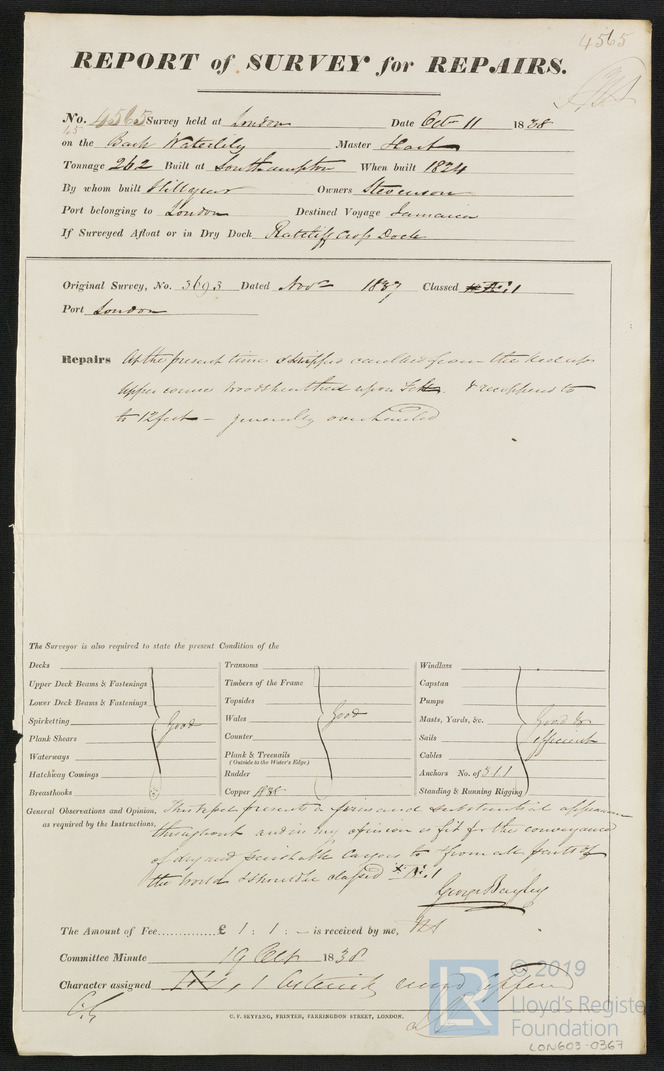 4565
REPORT of SURVEY for REPAIRS.
No. 4565 Survey held at London Date Oct 11 1838
45
on the Bark Waterlily Master Hart
Tonnage 262 Built at Southampton When built 1824
By whom built Owners Stevenson
Port belonging to London Destined Voyage Jamaica
If Surveyed Afloat or in Dry Dock Ratcliff Cross Dock
Original Survey, No. 3693 Dated Novr 1837 Classed 1
Port London
Repairs At the present time stripped caulked from the
upper course upon & recoppered to
to 12 feet - generally overhauled
The Surveyor is also required to state the present Condition of the
Decks
Upper Deck Beams & Fastenings
Lower Deck Beams & Fastenings
Spirketting Good
Plank Shears
Waterways
Hatchway Comings
Breasthooks
Transoms
Timbers of the Frame
Topsides
Wales Good
Counter
Plank & Treenails
(Outside to the Water's Edge)
Rudder
Copper
Windlass
Capstan
Pumps
Masts, Yards, &c. Good &
Sails efficient
Cables
Anchors No. of 311
Standing & Running Rigging
General Observations and Opinion, This vessel presents a firm and substantial appearance
as required by the Instructions, throughout and in my opinion is fit for the conveyance
of dry and perishable cargoes to & from all parts of
the World & should be classed 1
George Bayley
The Amount of Fee............ £ 1 : 1 : - is received by me,
Committee Minute 19 Oct 1838
Character assigned 1 Asterisk
C. F. SEYFANG, PRINTER, FARRINGDON STREET, LONDON.
© 2019
LR Lloyd's Register
Foundation
LON603-0367